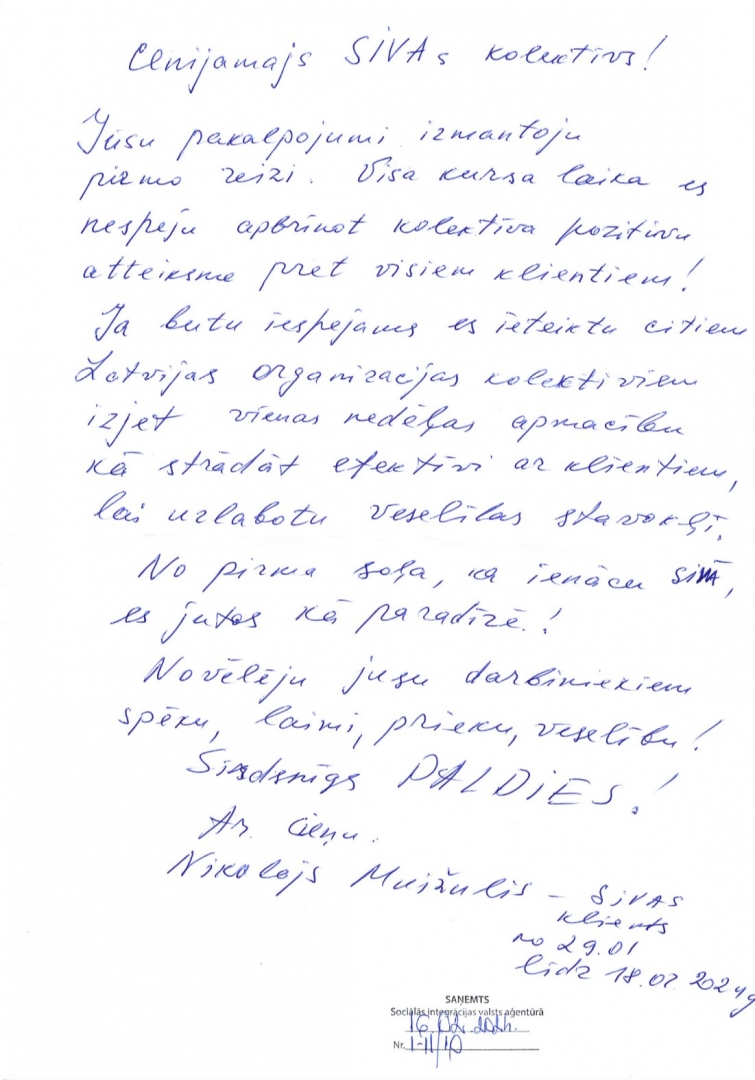 Cienījamajs SIVAs kolektīvs!
Jūsu pakalpojumi izmantoju
pirmo reizi. Visa kursa laika es
nespēju apbrīnot kolektīva pozitīvu
atteiksme pret visiem klientiem!
Ja butu iespejams es ieteiktu citiem
Latvijas organizacijas kolektiviem
izjet vienas nedēļas apmacību
kā strādāt efektīvi ar klientiem,
lai uzlabotu veselības stavokļi.
No pirma soļa, ka ienācu SIVĀ,
es jutos kā paradīzē!
Novēlēju jusu darbiniekiem
spēku, laimi, prieku, veselību!
Sirdsnīgs PALDIES!
Ar cieņu.
Nikolajs Muižulis – SIVAS
klients
no 29.01
līdz 18.02.2024g
SAŅEMTS
Sociālās integrācijas valsts aģentūrā
16.02.2024.
Nr. 1-11/10